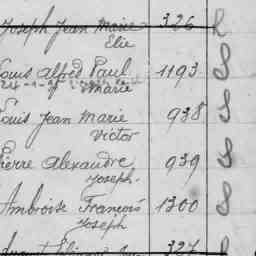 Joseph Jean Marie 326
Elie
Louis Alfred Paul 1193
Marie
Louis Jean Marie 938
Victor
Pierre Alexandre 939
Joseph
Ambroise François 1300
Joseph
327